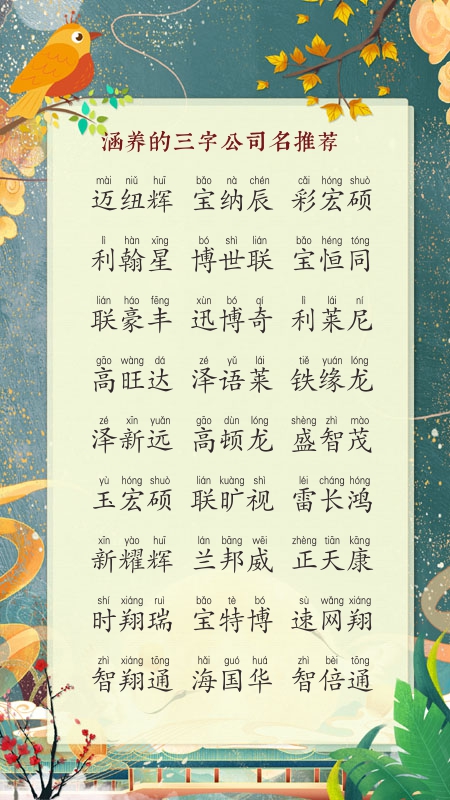 涵养的三字公司名推荐
mài niǔ huī bǎo nà chén cǎi hóng shuò
迈纽辉 宝纳辰 彩宏硕
lì hàn xīng bó shì lián bǎo héng tóng
利翰星 博世联 宝恒同
lián háo fēng xùn bó qí lì lái ní
联豪丰 迅博奇 利莱尼
gāo wàng dá zé yǔ lái tiě yuán lóng
高旺达 泽语莱 铁缘龙
zé xīn yuǎn gāo dùn lóng shèng zhì mào
泽新远 高顿龙 盛智茂
yù hóng shuò lián kuàng shì léi cháng hóng
玉宏硕 联旷视 雷长鸿
xīn yào huī lán bāng wēi zhèng tiān kāng
新耀辉 兰邦威 正天康
shí xiáng ruì bǎo tè bó sù wǎng xiáng
时翔瑞 宝特博 速网翔
zhì xiáng tōng hǎi guó huá zhì bèi tōng
智翔通 海国华 智倍通